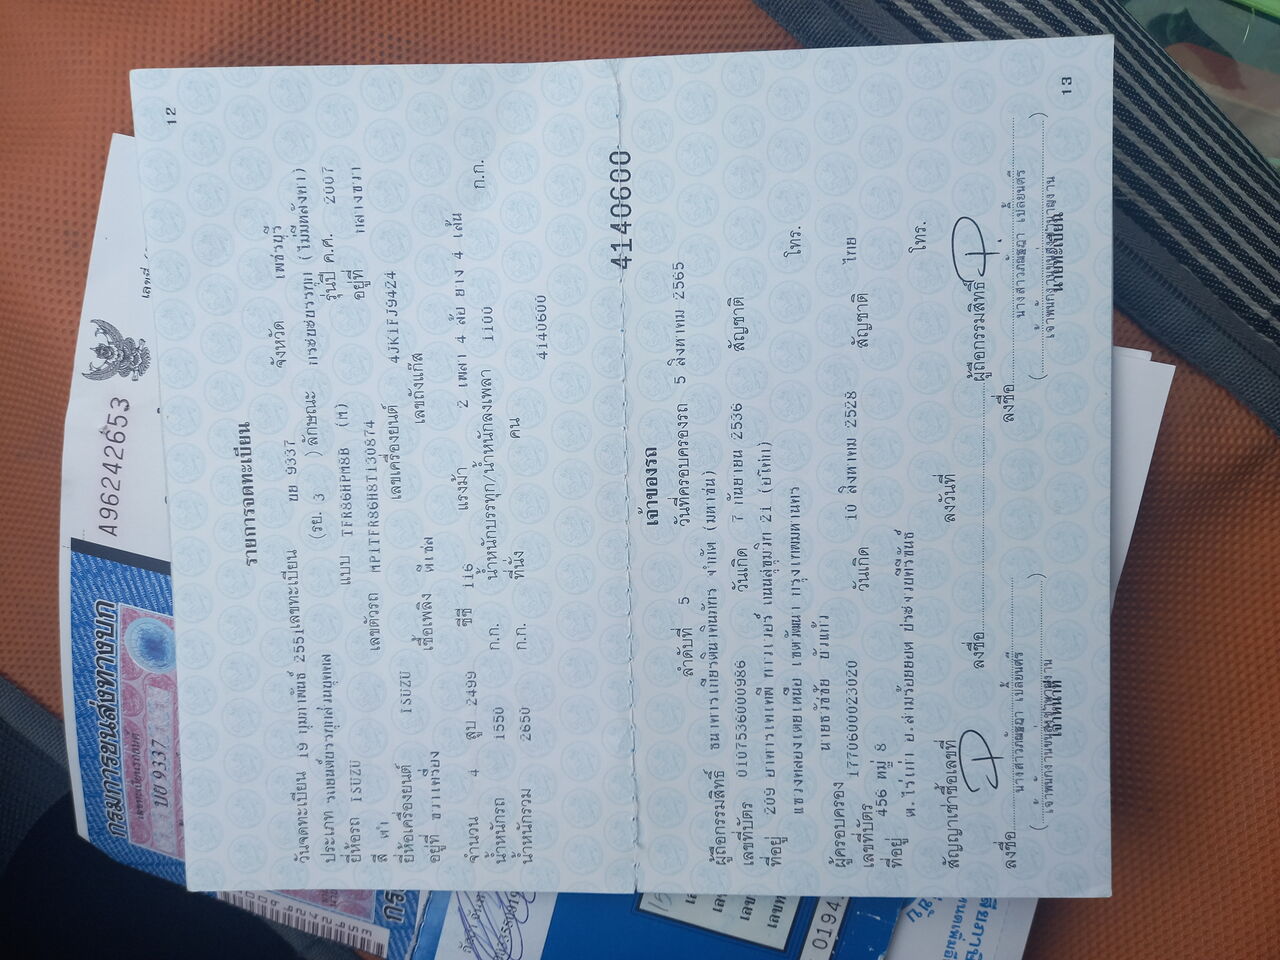 12
รายการจดทะเบียน
วันจดทะเบียน 19 กุมภาพันธ์ 2551 เลขทะเบียน บย 9337 จังหวัด เพชรบุรี
ประเภท รถยนต์บรรทุกส่วนบุคคล (รย. 3 ) ลักษณะ กระบะบรรทุก (ไม่มีหลังคา)
ยี่ห้อรถ ISUZU แบบ TFR86HPM8B (M) รุ่นปี ค.ศ. 2007
สี ดำ เลขตัวรถ MP1TFR86H8T130874 อยู่ที่ กลางขวา
ยี่ห้อเครื่องยนต์ ISUZU เลขเครื่องยนต์ 4JK1FJ9424
อยู่ที่ ขวาเครื่อง เชื้อเพลิง ดีเซล เลขถังแก๊ส
จำนวน 4 สูบ 2499 ซีซี 116 แรงม้า 2 เพลา 4 ล้อ ยาง 4 เส้น
น้ำหนักรถ 1550 ก.ก. น้ำหนักบรรทุก/น้ำหนักลงเพลา 1100 ก.ก.
น้ำหนักรวม 2650 ก.ก. ที่นั่ง คน 4140600
4140600
เจ้าของรถ
ลำดับที่ 5 วันที่ครอบครองรถ 5 สิงหาคม 2565
ผู้ถือกรรมสิทธิ์ ธนาคารเกียรตินาคินภัทร จำกัด (มหาชน)
เลขที่บัตร 0107536000986 วันเกิด 7 กันยายน 2536 สัญชาติ
ที่อยู่ 209 อาคารเคเคพี ทาวเวอร์ ถนนสุขุมวิท 21 (อโศก)
แขวงคลองเตยเหนือ เขตวัฒนา กรุงเทพมหานคร โทร.
ผู้ครอบครอง นายธวัชชัย บัวแก้ว
เลขที่บัตร 1770600023020 วันเกิด 10 สิงหาคม 2528 สัญชาติ ไทย
ที่อยู่ 456 หมู่ 8
ต. ไร่เก่า อ.สามร้อยยอด ประจวบคีรีขันธ์ โทร.
สัญญาเช่าซื้อเลขที่ ลงวันที่
ลงชื่อ ผู้ถือกรรมสิทธิ์
ลงชื่อ ลงชื่อ
13
A96242653
เลขที่
กรมการขนส่งทางบก
บย 9337
0194